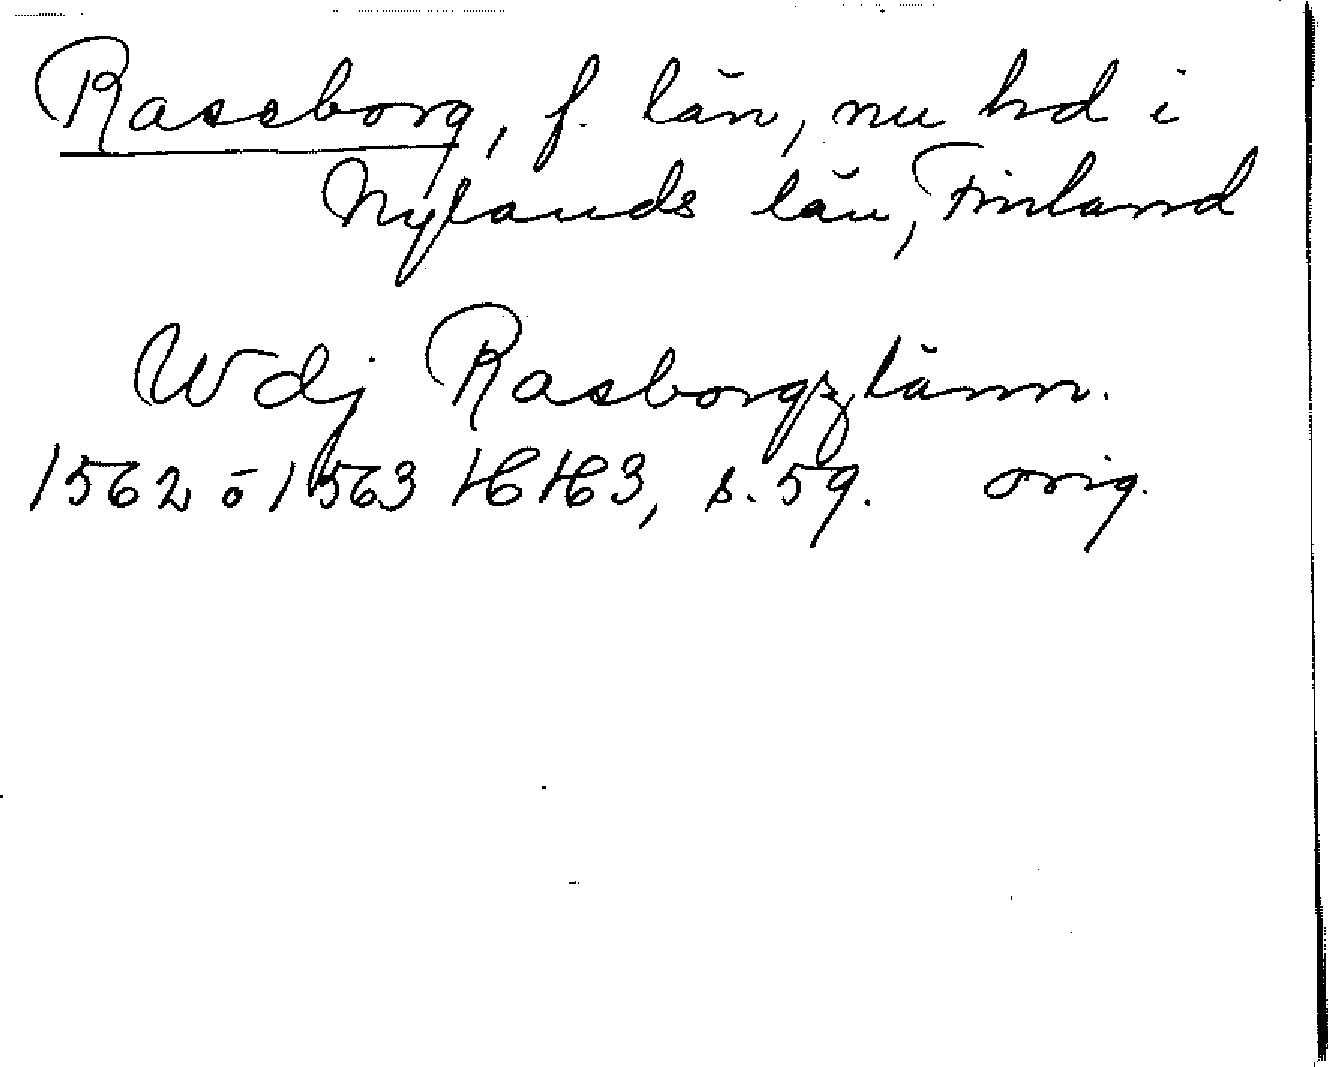 Raseborg, f. län, nu hd i
Nylands län, Finland
Wdj Rasborgz länn.
1562 ō 1563 HH 3, s. 59. orig.